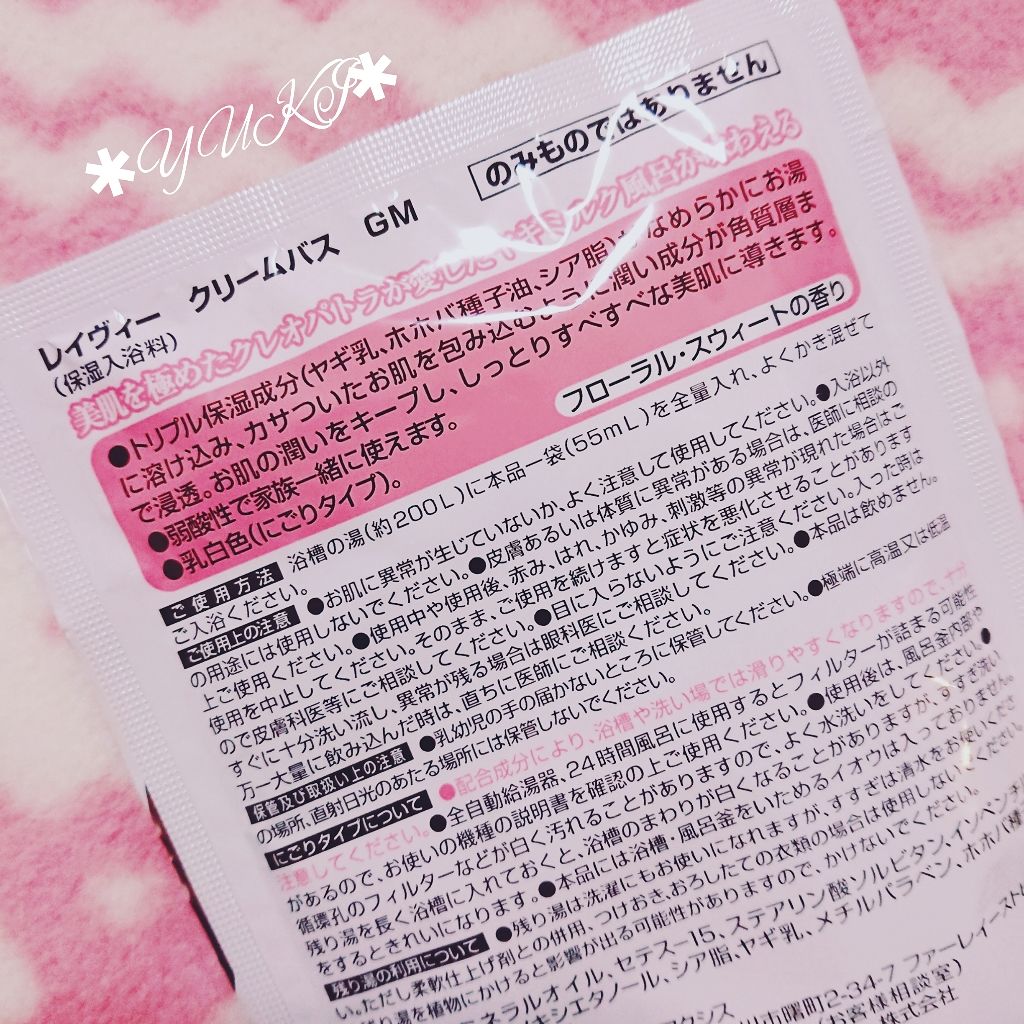 *YUKI*
のみものではありません
レイヴィー クリームバス GM
(保湿入浴料)
美肌を極めたクレオパトラが愛したヤギミルク風呂が味わえる
●トリプル保湿成分(ヤギ乳、ホホバ種子油、シア脂)がなめらかにお湯
に溶け込み、カサついたお肌を包み込むように潤い成分が角質層ま
で浸透。お肌の潤いをキープし、しっとりすべすべな美肌に導きます。
●弱酸性で家族一緒に使えます。
●乳白色(にごりタイプ)。
フローラル・スウィートの香り
ご使用方法 浴槽の湯(約200L)に本品一袋(55mL)を全量入れ、よくかき混ぜて
ご入浴ください。
ご使用上の注意 ●お肌に異常が生じていないか、よく注意して使用してください。●入浴以外
の用途には使用しないでください。●皮膚あるいは体質に異常がある場合は、医師に相談の
上ご使用ください。●使用中や使用後、赤み、はれ、かゆみ、刺激等の異常が現れた場合はご
使用を中止してください。そのまま、ご使用を続けますと症状を悪化させることがあります
ので皮膚科医等にご相談してください。●目に入らないようにご注意ください。入った時は
すぐに十分洗い流し、異常が残る場合は眼科医にご相談してください。●本品は飲めません。
万一大量に飲み込んだ時は、直ちに医師にご相談ください。
保管及び取扱い上の注意 ●乳幼児の手の届かないところに保管してください。●極端に高温又は低温
の場所、直射日光のあたる場所には保管しないでください。
にごりタイプについて ●配合成分により、浴槽や洗い場では滑りやすくなりますので、
注意してください。●全自動給湯器、24時間風呂に使用するとフィルターが詰まる可能性
があるので、お使いの機種の説明書を確認の上ご使用ください。●使用後は、風呂釜内部や
循環孔のフィルターなどが白く汚れることがありますので、よく水洗いをしてください。●
残り湯を長く浴槽に入れておくと、浴槽のまわりが白くなることがありますが、すすぎ洗い
をするときれいになります。●本品には浴槽・風呂釜をいためるイオウは入っておりません。
残り湯の利用について ●残り湯は洗濯にもお使いになれますが、すすぎは清水をお使いくださ
い。ただし柔軟仕上げ剤との併用、つけおき、おろしたての衣類の場合は使用しないでください。
残り湯を植物にかけると影響が出る可能性がありますので、かけないでください。
ミネラルオイル、セテス-15、ステアリン酸ソルビタン、イソペンチ
キシエタノール、シア脂、ヤギ乳、メチルパラベン、ホホバ種
アクシス
市曙町2-34-7 ファーレイースト
(お客様相談室)
株式会社